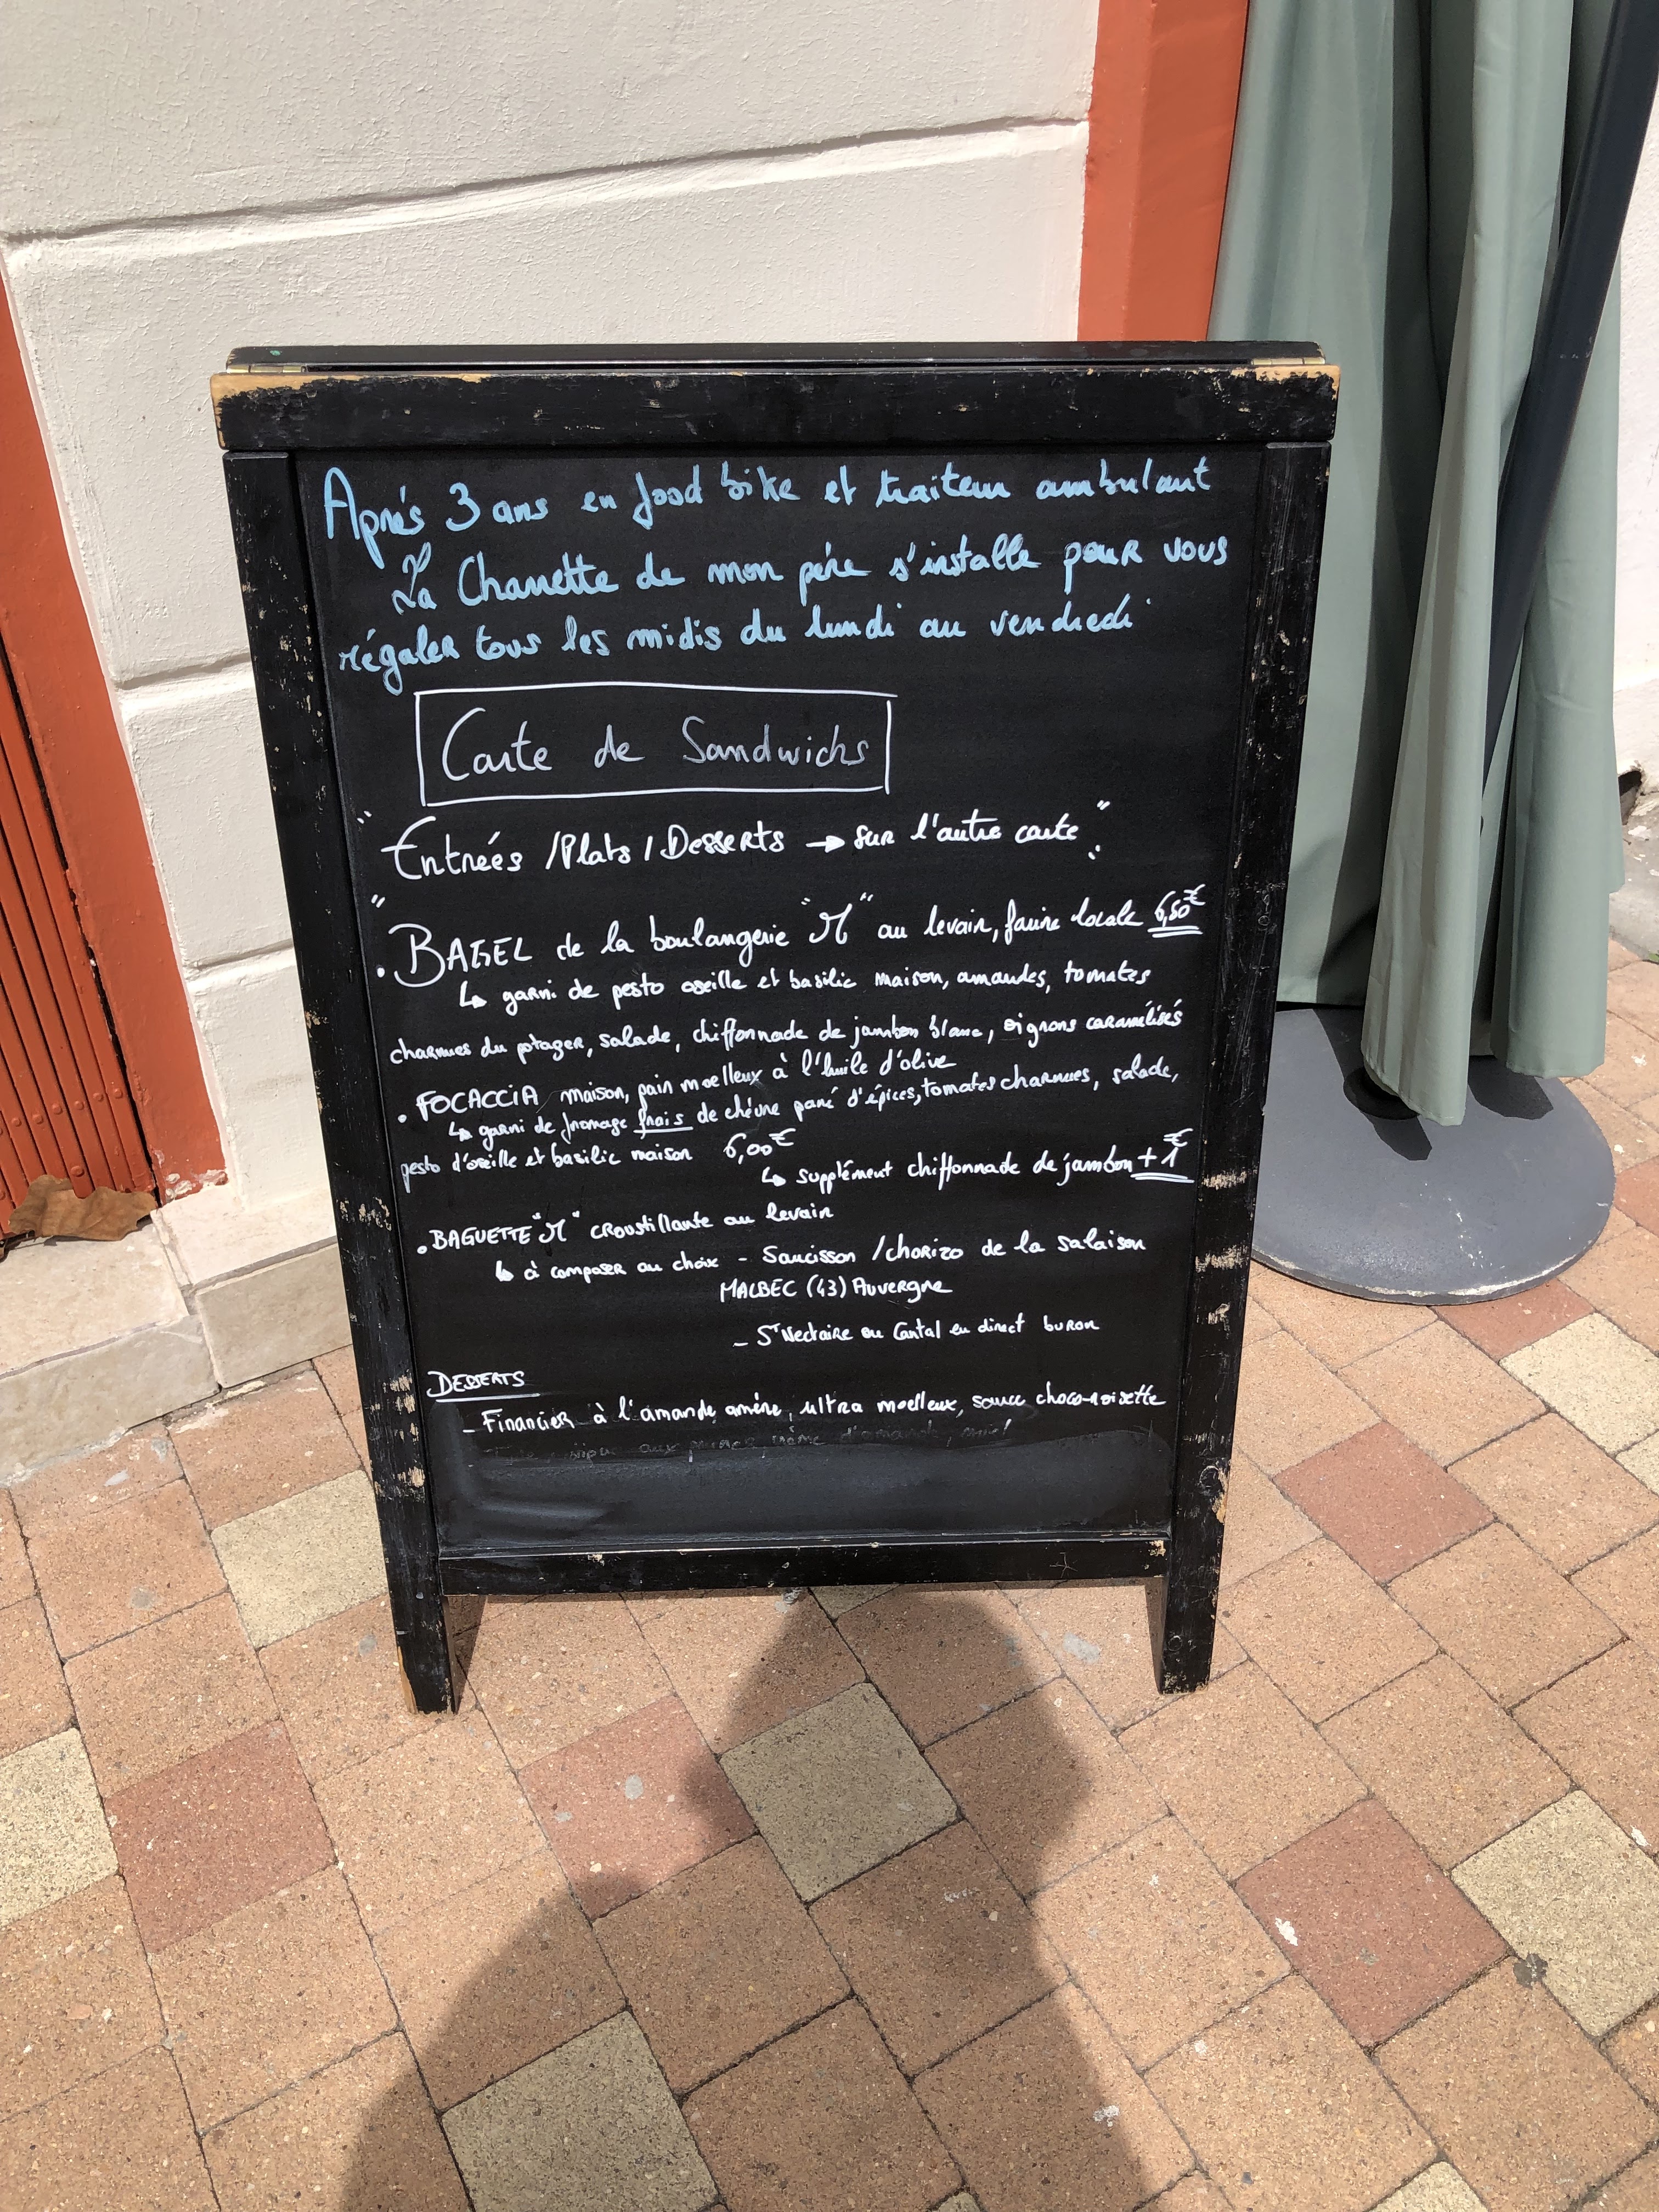 Après 3 ans en food bike et traiteur ambulant
La Charrette de mon père s'installe pour vous
régaler tous les midis du lundi au vendredi
Carte de Sandwichs
"Entrées / Plats / Desserts → sur l'autre carte"
• BAGEL de la boulangerie "M" au levain, farine locale 6,50€
↳ garni de pesto oseille et basilic maison, amandes, tomates
charnues du potager, salade, chiffonnade de jambon blanc, oignons caramélisés
• FOCACCIA maison, pain moelleux à l'huile d'olive
↳ garni de fromage frais de chèvre pané d'épices, tomates charnues, salade,
pesto d'oseille et basilic maison 6,00€
↳ supplément chiffonnade de jambon +1€
• BAGUETTE "M" croustillante au levain
↳ à composer au choix - Saucisson / chorizo de la salaison
MALBEC (43) Auvergne
- St Nectaire ou Cantal en direct buron
DESSERTS
- Financier à l'amande amère, ultra moelleux, sauce choco-noisette